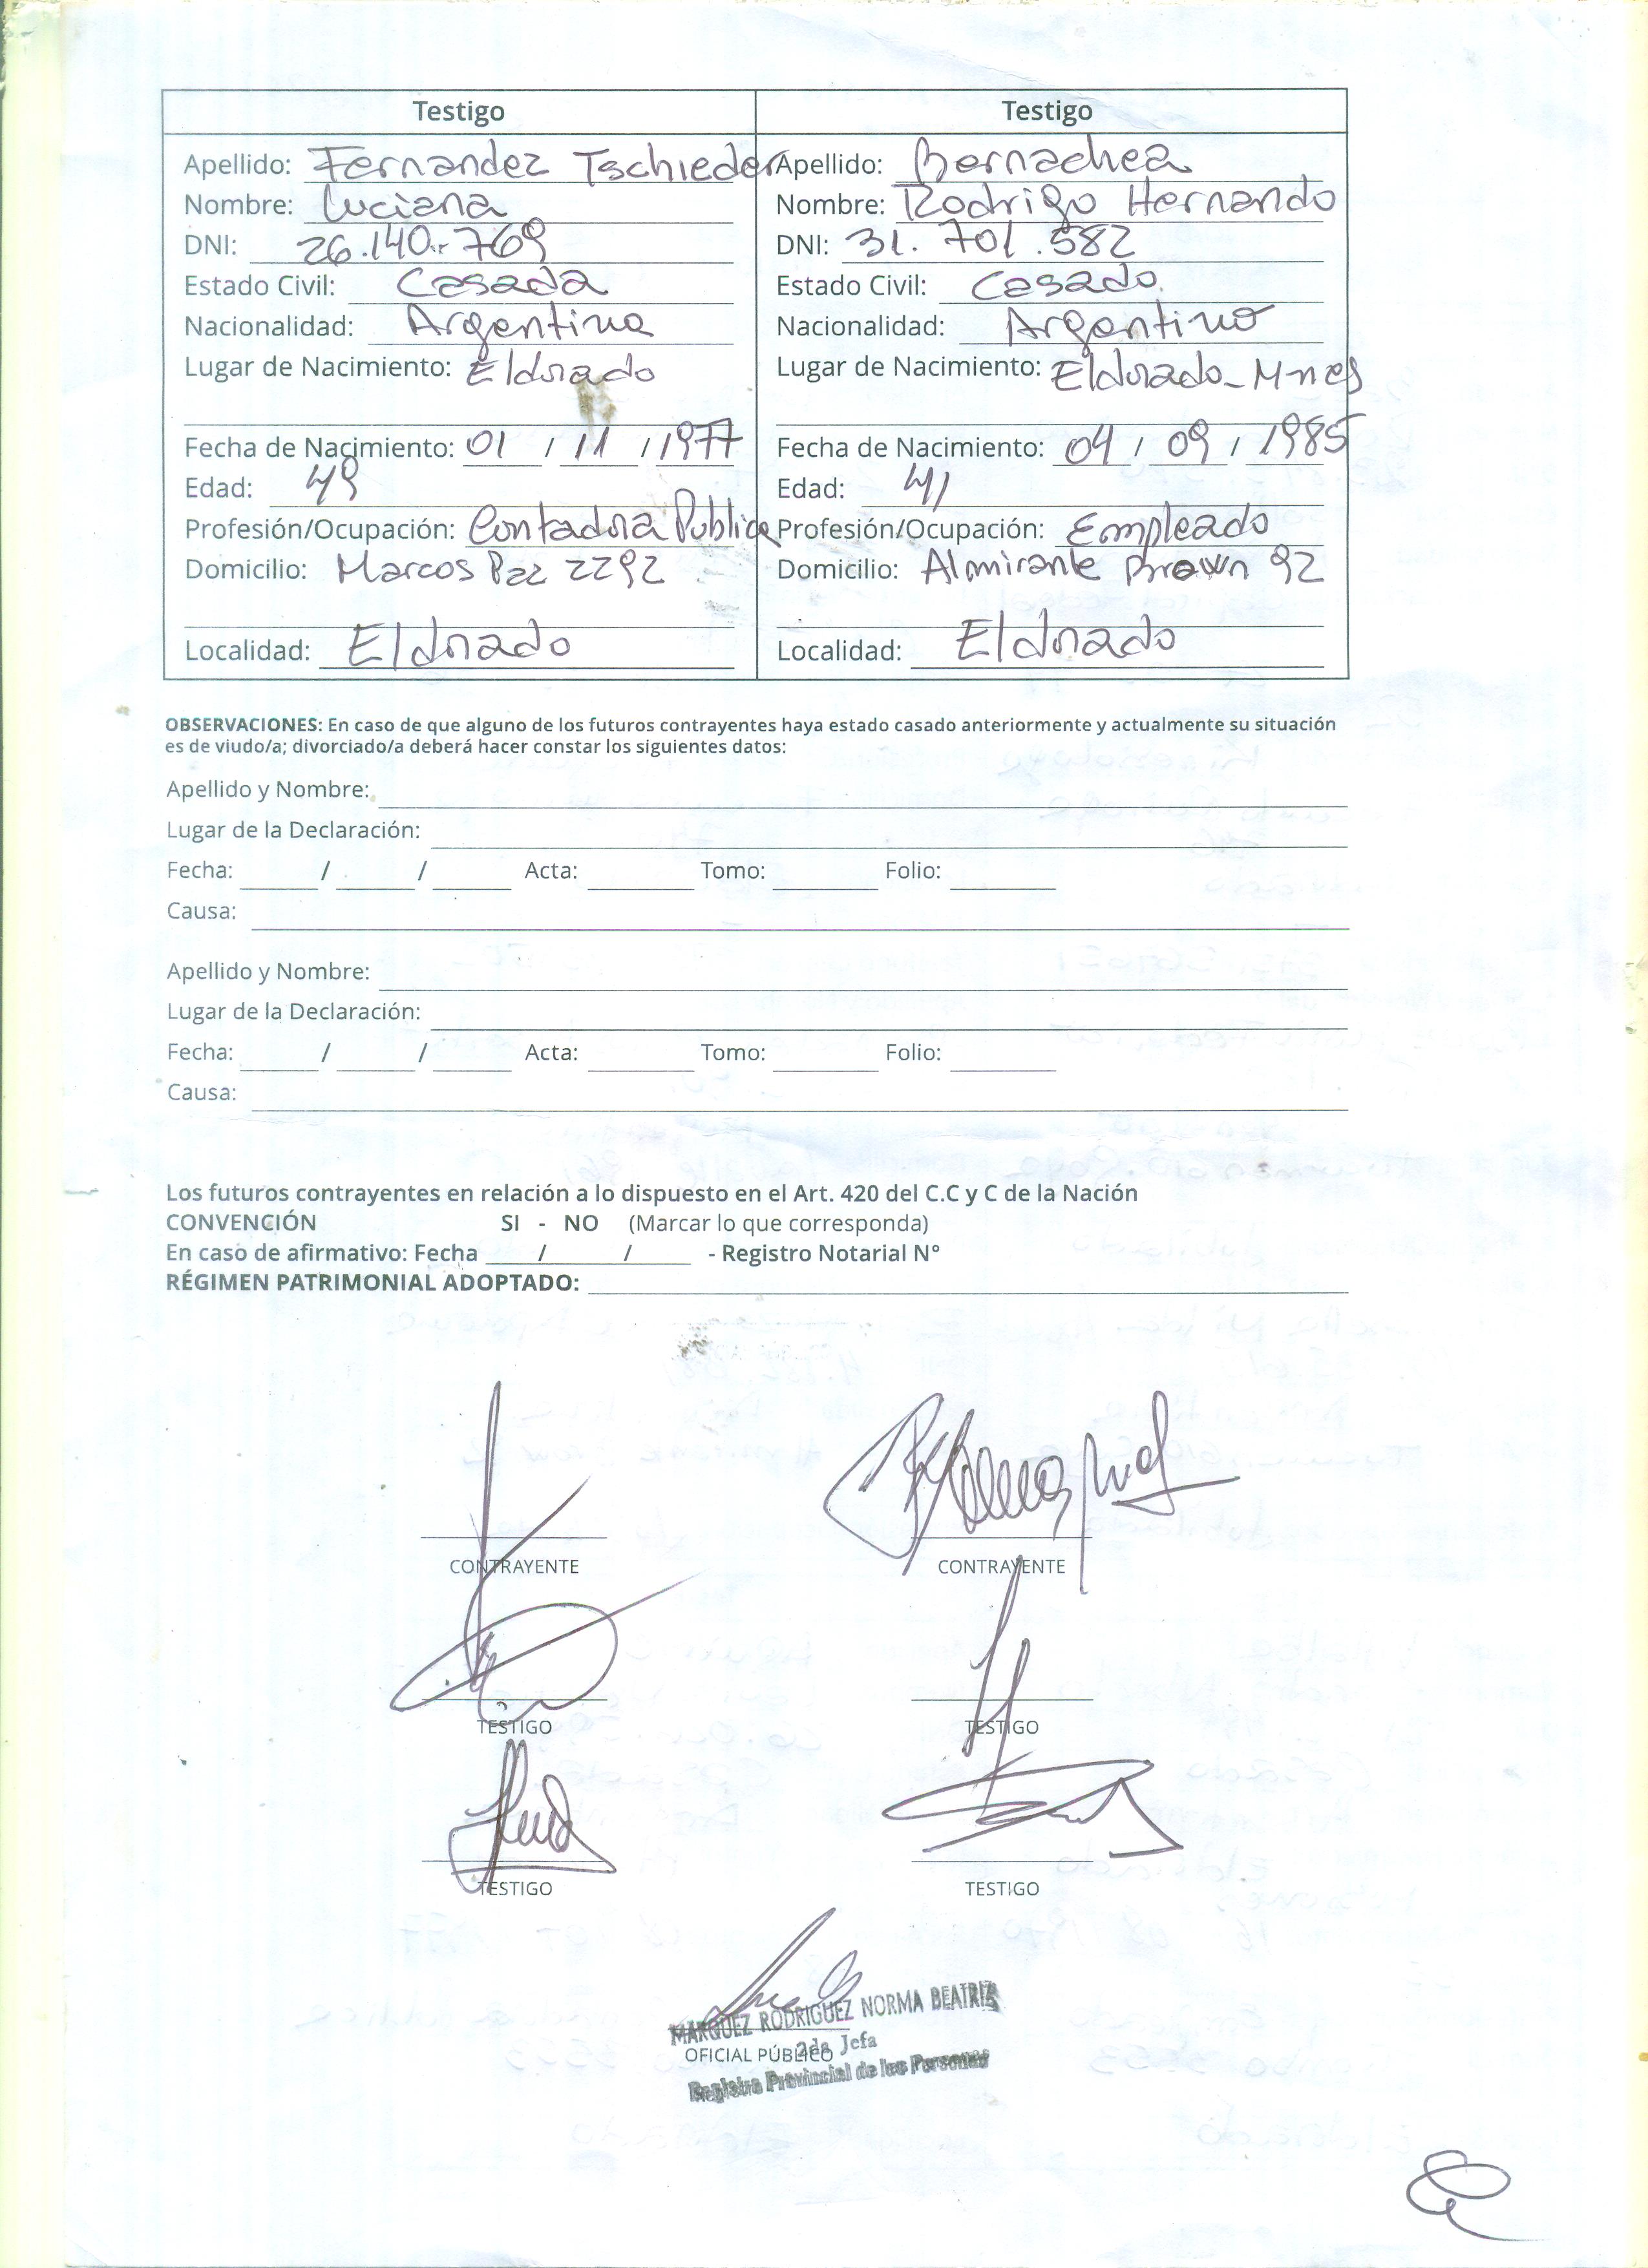 Testigo
Apellido: Fernandez Tschieder
Nombre: Luciana
DNI: 26.140.769
Estado Civil: Casada
Nacionalidad: Argentina
Lugar de Nacimiento: Eldorado
Fecha de Nacimiento: 01 / 11 / 1977
Edad: 49
Profesión/Ocupación: Contadora Publica
Domicilio: Marcos Paz 2292
Localidad: Eldorado
Testigo
Apellido: Bernachea
Nombre: Rodrigo Hernando
DNI: 31.701.582
Estado Civil: Casado.
Nacionalidad: Argentino
Lugar de Nacimiento: Eldorado-Mnes
Fecha de Nacimiento: 04 / 09 / 1985
Edad: 41
Profesión/Ocupación: Empleado
Domicilio: Almirante Brown 92
Localidad: Eldorado
OBSERVACIONES: En caso de que alguno de los futuros contrayentes haya estado casado anteriormente y actualmente su situación
es de viudo/a; divorciado/a deberá hacer constar los siguientes datos:
Apellido y Nombre:
Lugar de la Declaración:
Fecha: / / Acta: Tomo: Folio:
Causa:
Apellido y Nombre:
Lugar de la Declaración:
Fecha: / / Acta: Tomo: Folio:
Causa:
Los futuros contrayentes en relación a lo dispuesto en el Art. 420 del C.C y C de la Nación
CONVENCIÓN SI - NO (Marcar lo que corresponda)
En caso de afirmativo: Fecha / / - Registro Notarial N°
RÉGIMEN PATRIMONIAL ADOPTADO:
CONTRAYENTE CONTRAYENTE
TESTIGO TESTIGO
TESTIGO TESTIGO
MARQUEZ RODRIGUEZ NORMA BEATRIZ
OFICIAL PÚBLICO 2da Jefa
Registro Provincial de las Personas